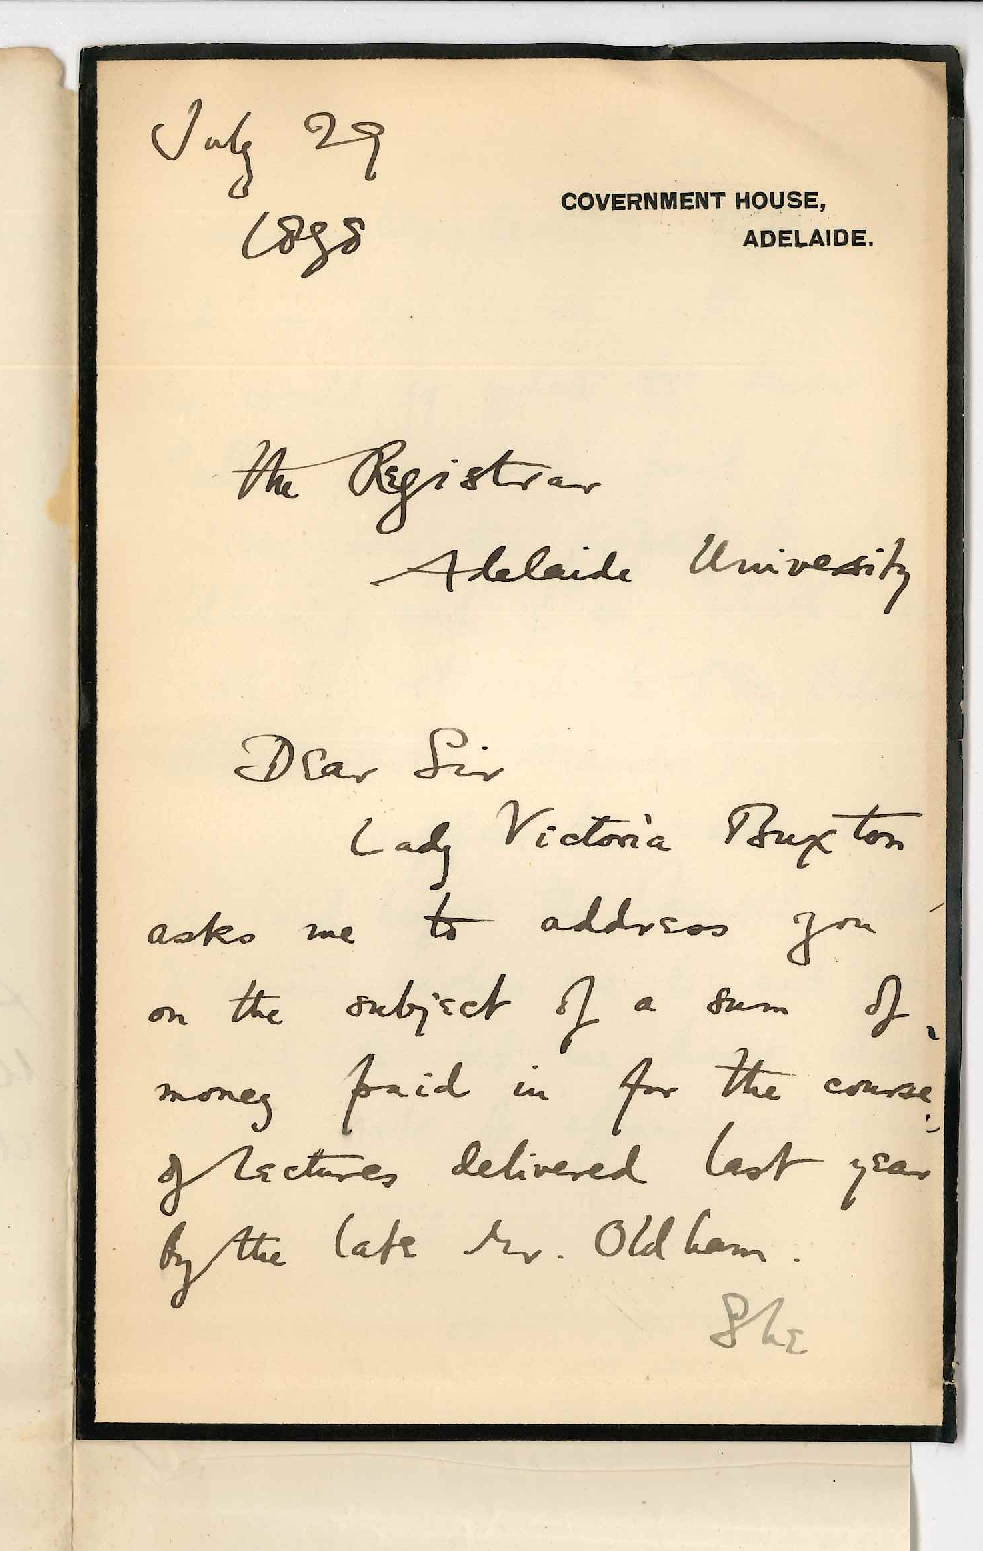 July 29
1898
GOVERNMENT HOUSE,
ADELAIDE.
The Registrar
Adelaide University
Dear Sir
Lady Victoria Buxton
asks me to address you
on the subject of a sum of
money paid in for the course
of lectures delivered last year
by the late Mr. Oldham.
She